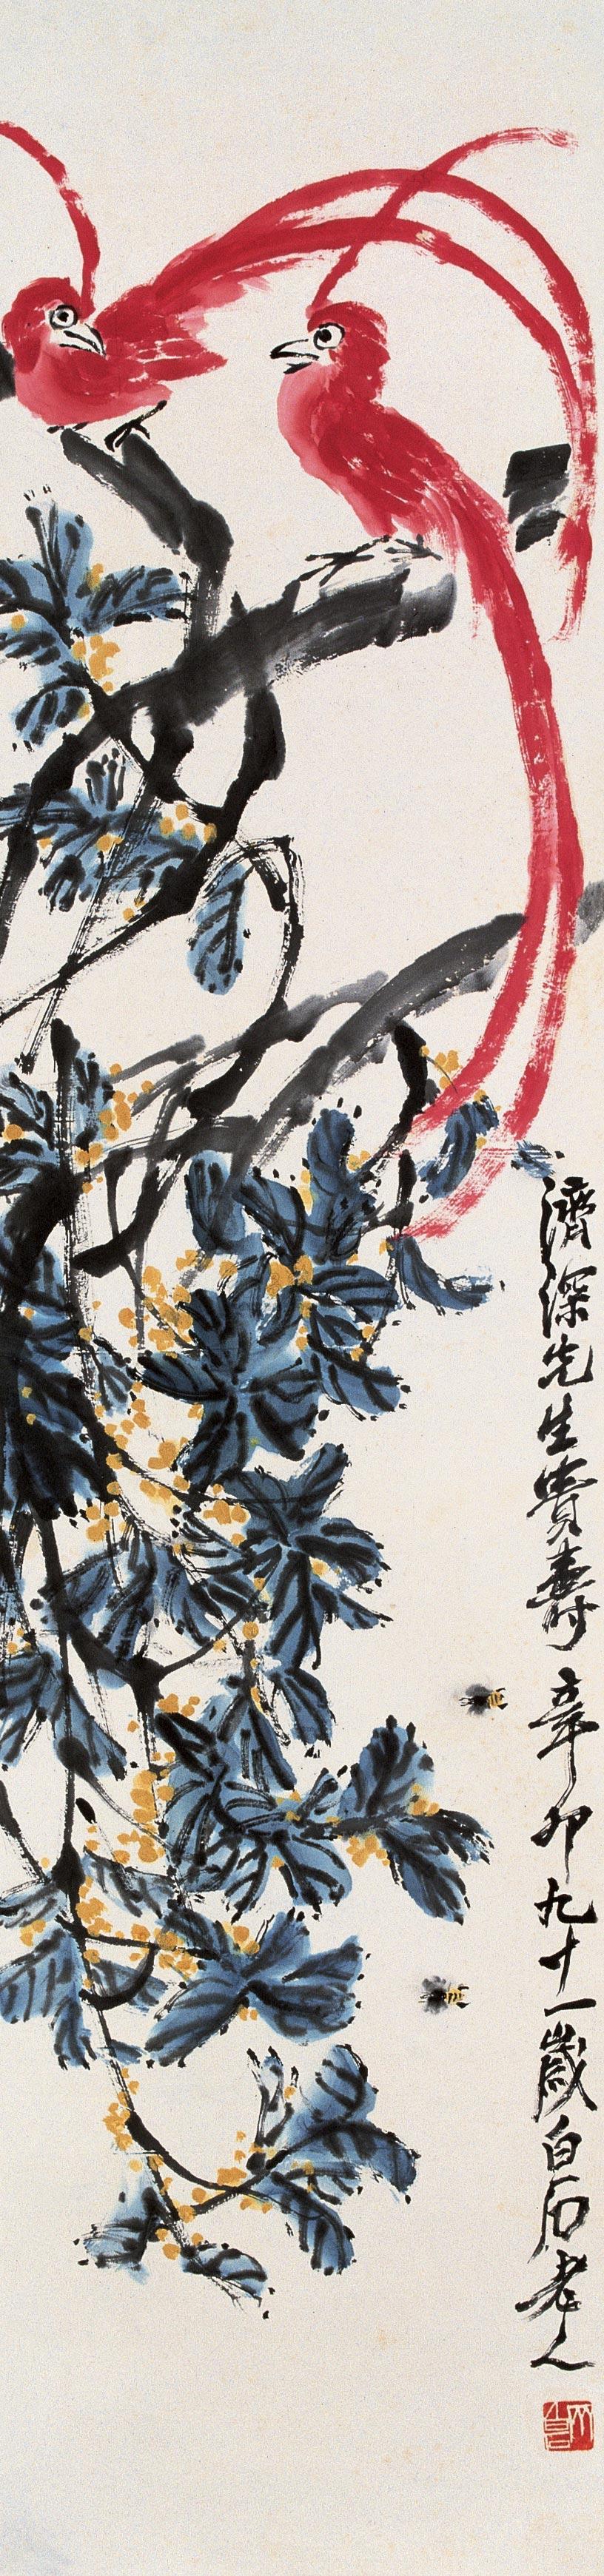 濟深先生貴壽 辛卯九十一歲白石老人